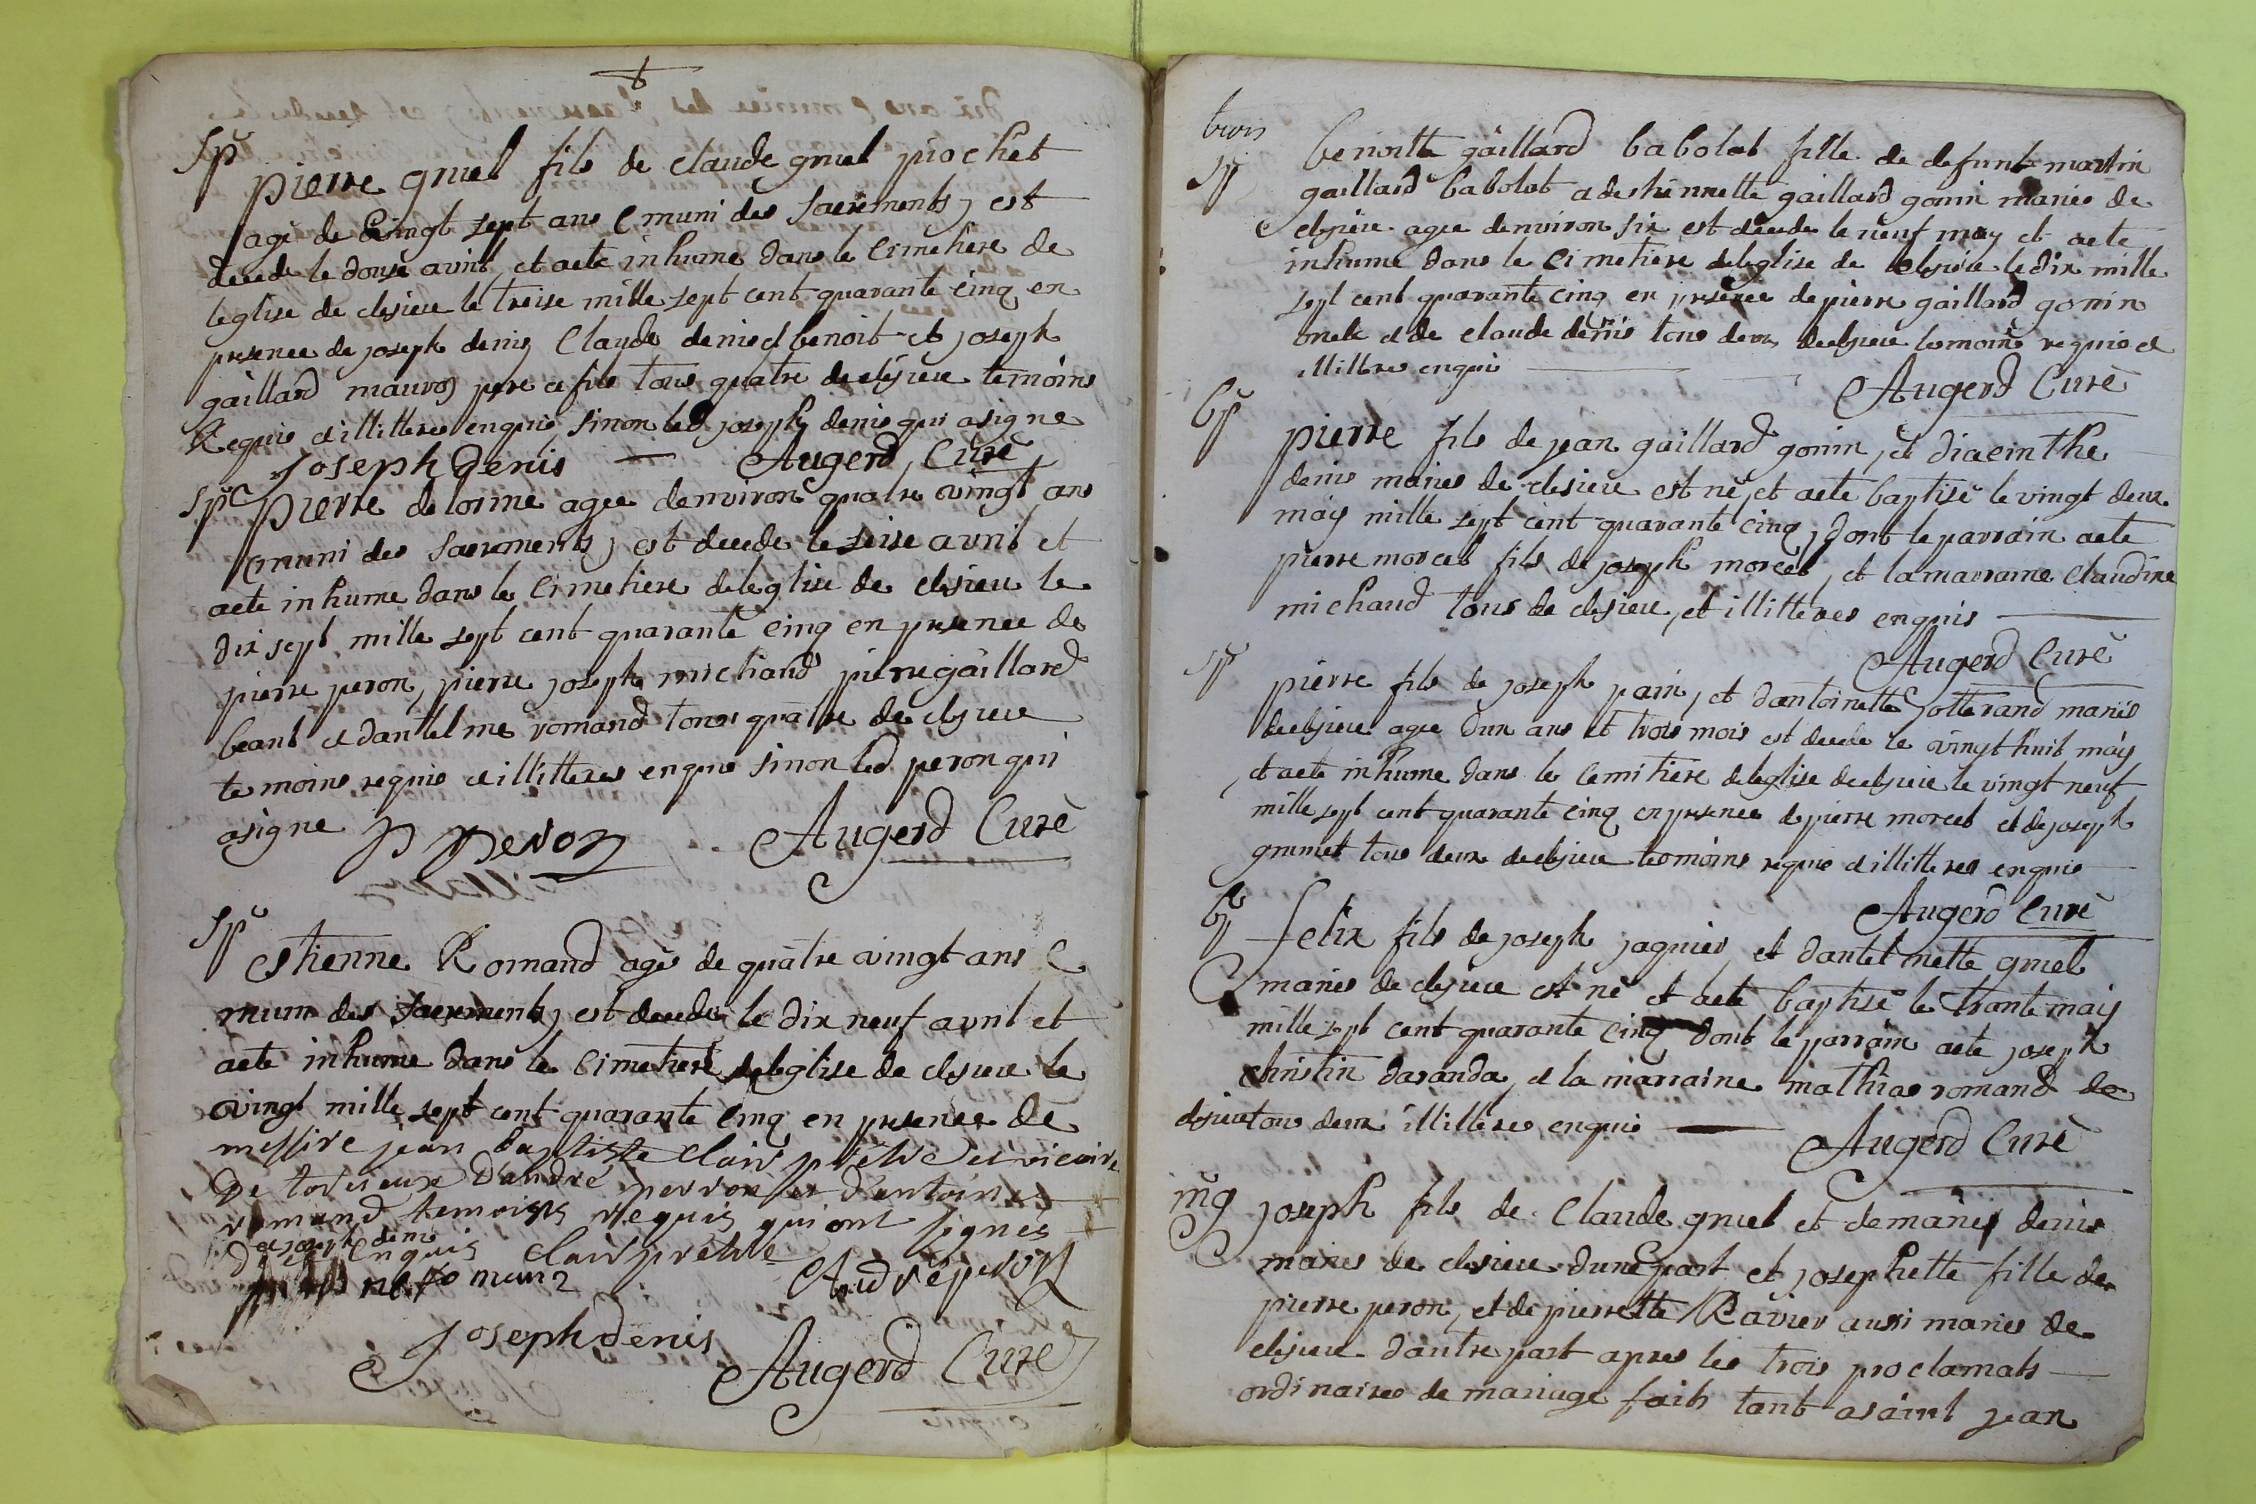 Sp̃
pierre gruel fils de claude gruel piochet
agé de vingt sept ans Emuni des Sacrements, est
decede le douse avril et aeté inhume dans le cimetiere de
leglise de cleysieu le treise mille sept cent quarante cinq en
presence de joseph denis Claude denis et benoit et joseph
gaillard mauvos pere et fils tous quatre de cleysieu temoins
Requis et illitteres enquis sinon led joseph denis qui a signe
Joseph denis Augerd Curé
Sp̃
Pierre delorme agee denviron quatre vingt ans
Emuni des Sacrements, est decede le seise avril et
aeté inhume dans le cimetiere de leglise de cleysieu le
dix sept mille sept cent quarante cinq en presence de
pierre peron, pierre joseph michaud pierre gaillard
beant et dantelme romand tous quatre de cleysieu
temoins requis et illitteres enquis sinon led peron qui
a signe P peron Augerd Curé
Sp̃
Estienne Romand agé de quatre vingt ans E
muni des Sacrements, est decede le dix neuf avril et
aeté inhume dans le cimetiere de leglise de cleysieu le
vingt mille sept cent quarante cinq en presence de
messire jean baptiste Clair prêtre et vicaire
De torcieux D'andré perron et d'antoine
romand temoins requis qui ont signés
et joseph denis
enquis Clair prêtre
romand André peron
Joseph denis Augerd Curé
trois
Sp̃
benoitte gaillard babolat fille de defunt martin
gaillard babolat a destiennette gaillard gonin maries de
cleysieu agee denviron six est decede le neuf may et aeté
inhume dans le cimetiere de leglise de cleysieu le dix mille
sept cent quarante cinq en presence de pierre gaillard gonin
oncle et de claude denis tous deux de cleysieu temoins requis et
illitteres enquis
Augerd Curé
bp̃
pierre fils de jean gaillard gonin, et diacinthe
denis maries de cleysieu est né, et aeté baptisé le vingt deux
may mille sept cent quarante cinq, dont le parrain aeté
pierre morcel fils de joseph morcel, et la marraine claudine
michaud tous de cleysieu, et illitteres enquis
Augerd Curé
Sp̃
pierre fils de joseph pain, et dantoinette Jotterand maries
de cleysieu agee dun ans et trois mois est decede le vingt huit may
et aeté inhume dans le cemitiere de leglise de cleysieu le vingt neuf
mille sept cent quarante cinq en presence de pierre morcel et de joseph
grumet tous deux de cleysieu temoins requis et illitteres enquis
Augerd Curé
bp̃
Felix fils de joseph jaquier, et dantelmette gruel
maries de cleysieu est né et aeté baptisé le trante may
mille sept cent quarante cinq dont le parrain aeté joseph
christin daranda, et la marraine mathias romand de
cleysieu tous deux illitteres enquis
Augerd Curé
mg
joseph fils de Claude gruel et de marie denis
maries de cleysieu dune part et josephette fille de
pierre peron, et de pierrette Ravier aussi maries de
cleysieu dautre part apres les trois proclamats
ordinaires de mariage faits tant a saint jean